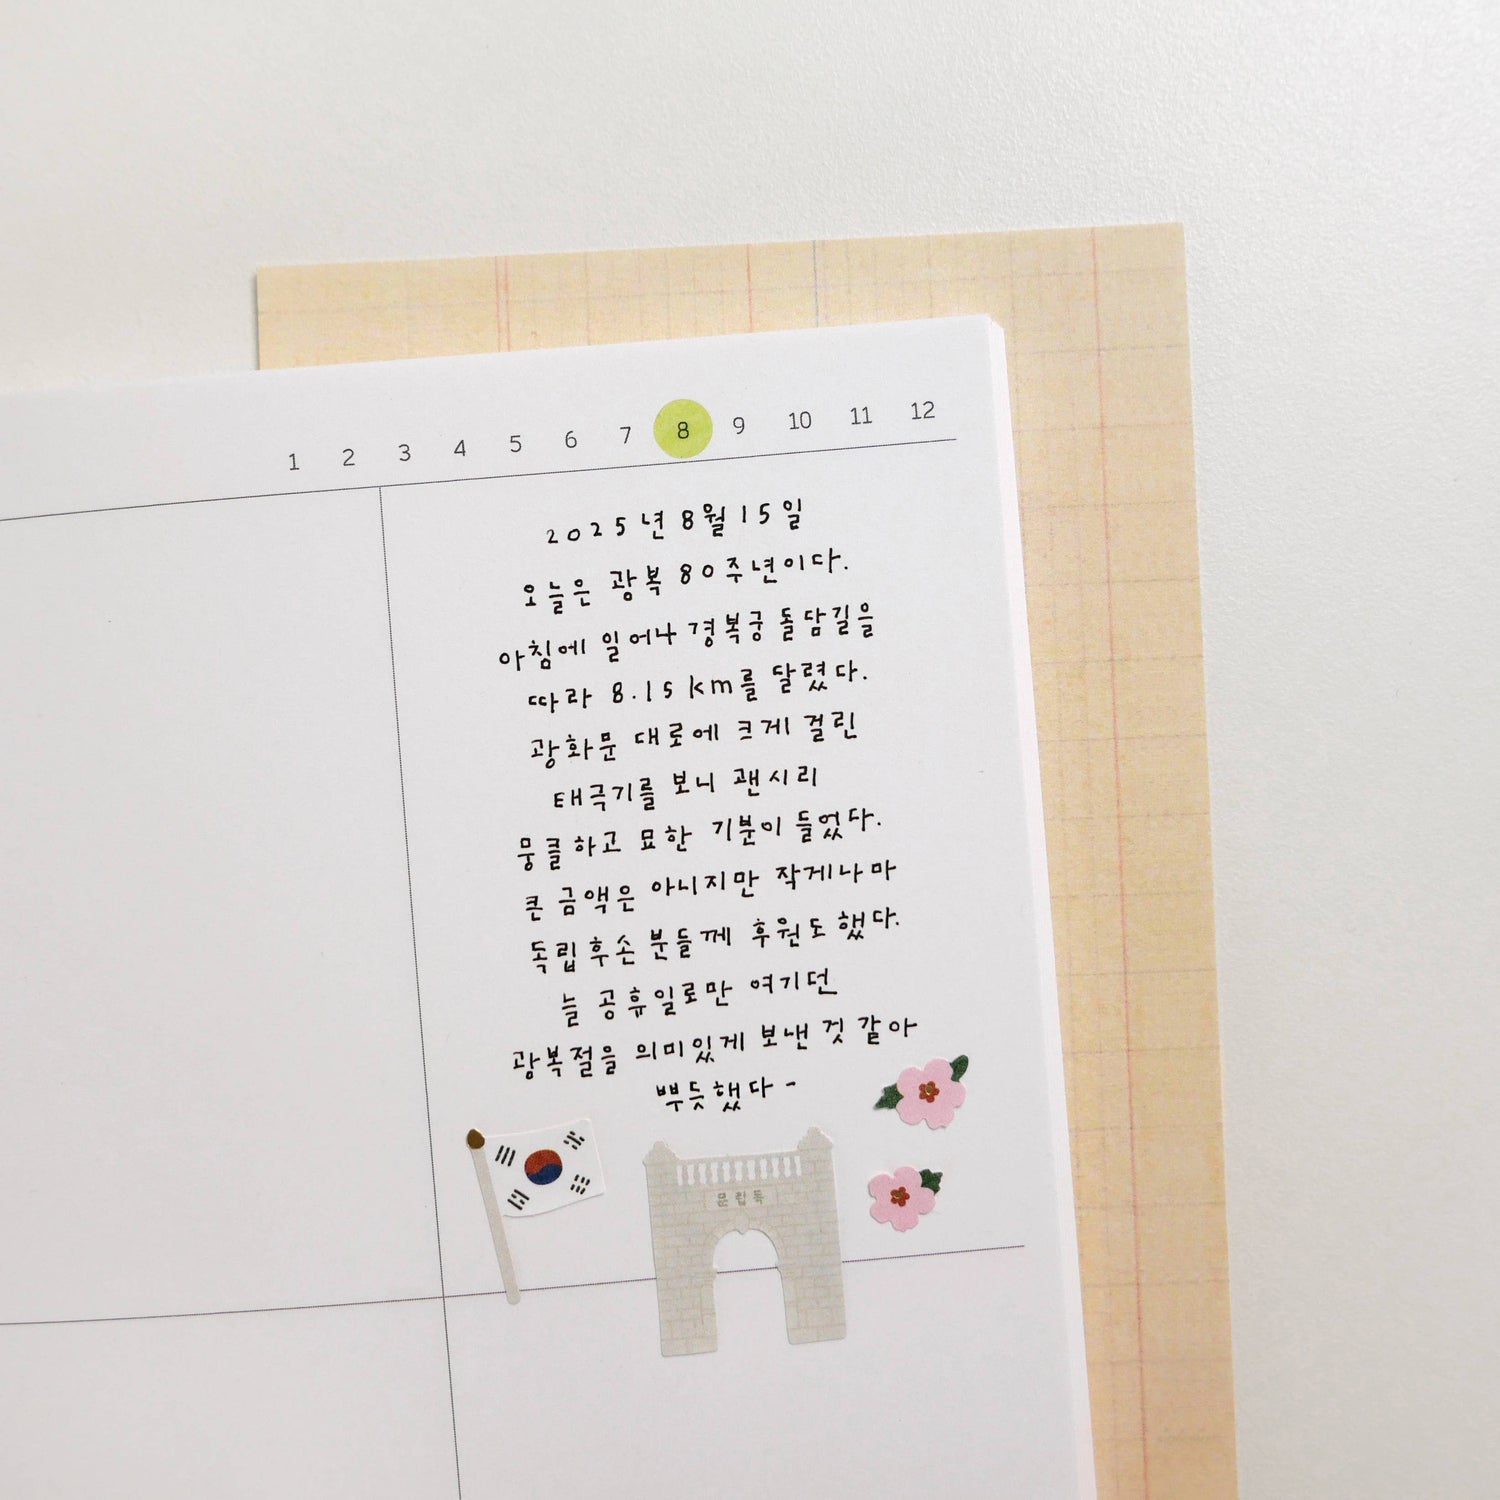 1 2 3 4 5 6 7 8 9 10 11 12
2025년 8월 15일
오늘은 광복 80주년이다.
아침에 일어나 경복궁 돌담길을
따라 8.15km를 달렸다.
광화문 대로에 크게 걸린
태극기를 보니 괜시리
뭉클하고 묘한 기분이 들었다.
큰 금액은 아니지만 작게나마
독립후손 분들께 후원도 했다.
늘 공휴일로만 여기던
광복절을 의미있게 보낸 것 같아
뿌듯했다-
문립독